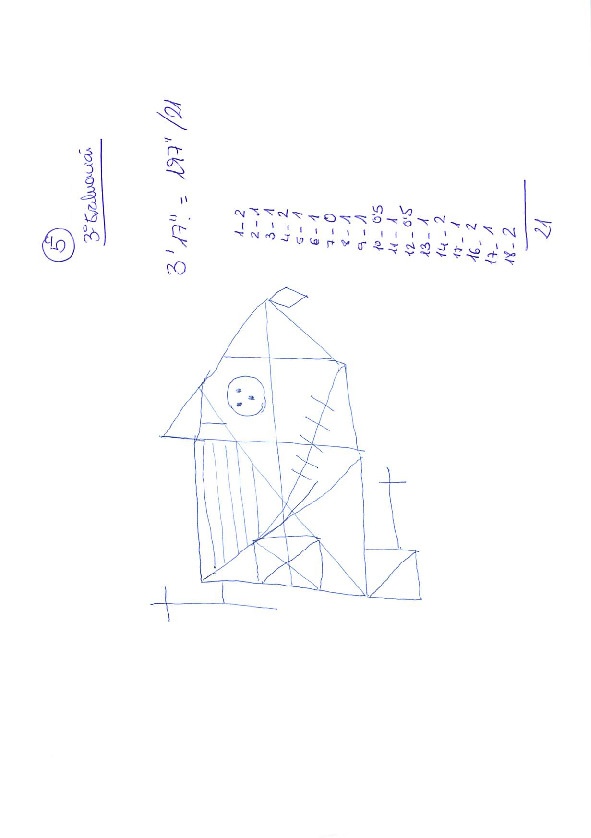 5
3ª Evaluación
3' 17" = 197" /21
1-2
2-1
3-1
4-2
5-1
6-1
7-0
8-1
9-1
10-0'5
11-1
12-0'5
13-1
14-2
17-1
16-2
17-1
18-2
21